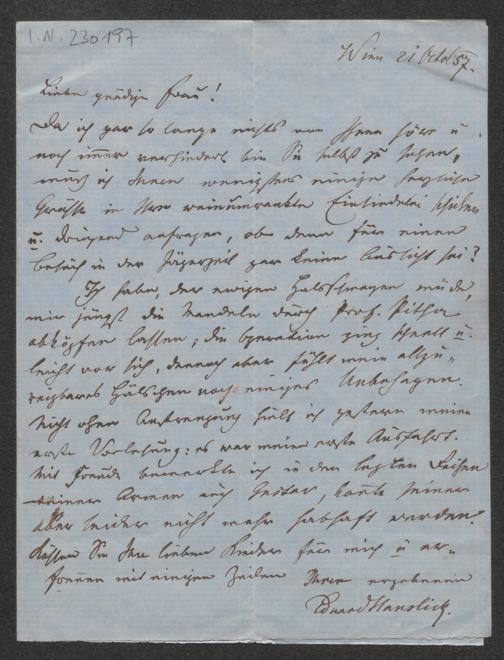 I. N. 230197
Wien 21 Octob 57.
Liebe gnädige Frau!
Da ich gar so lange nichts von Ihnen höre u.
noch immer verhindert bin Sie selbst zu sehen,
muß ich Ihnen wenigstens einige herzliche
Grüße in Ihre weinumrankte Einsiedelei schicken
u. dringend anfragen, ob denn für einen
Besuch in der Jägerzeil gar keine Aussicht sei?
Ich habe, der ewigen Halsschmerzen müde,
mir jüngst die Mandeln durch Prof. Pitha
abköpfen lassen; die Operation ging schnell u.
leicht vor sich, dennoch aber fühlt mein allzu-
reizbares Hälschen noch einiges Unbehagen.
Nicht ohne Anstrengung hielt ich gestern meine
erste Vorlesung: es war meine erste Ausfahrt.
Mit Freude bemerkte ich in den letzten Reihen
meiner Armen auch Gustav, konnte seiner
aber leider nicht mehr habhaft werden.
Küssen Sie Ihre lieben Kinder für mich u er-
freuen mit einigen Zeilen Ihren ergebenen
Eduard Hanslick.